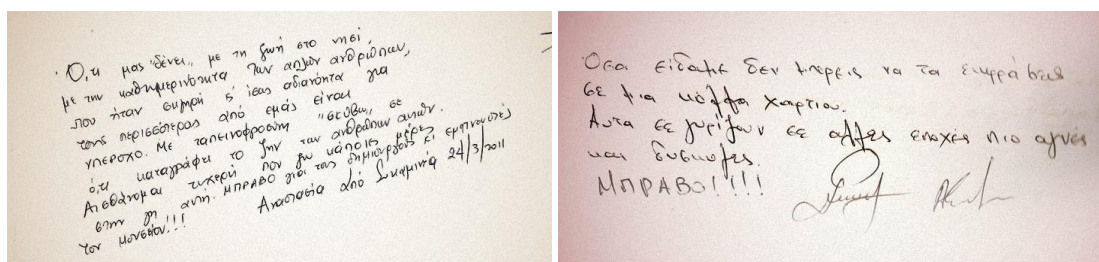 Ό,τι μας "δένει" με τη ζωή στο νησί,
με την καθημερινότητα των απλών ανθρώπων,
που ήταν σκληρή ς' ίσως αδιανόητα για
τους περισσότερους από εμάς είναι
υπέροχο. Με ταπεινοφροσύνη "σκύβω" σε
ό,τι καταγράφει το ζην των ανθρώπων αυτών.
Αισθάνομαι τυχερή που ζω κάποιες μέρες
στην γη αυτή. ΜΠΡΑΒΟ για τους δημιουργούς κι εμπνευστές
του μουσείου!!!
Αναστασία από Συκαμινιά 24/3/2011
Όσα είδαμε δεν μπορείς να τα εκφράσεις
σε μια κόλλα χαρτιού.
Αυτά σε γυρίζουν σε άλλες εποχές πιο αγνές
και δύσκολες.
ΜΠΡΑΒΟ!!!!